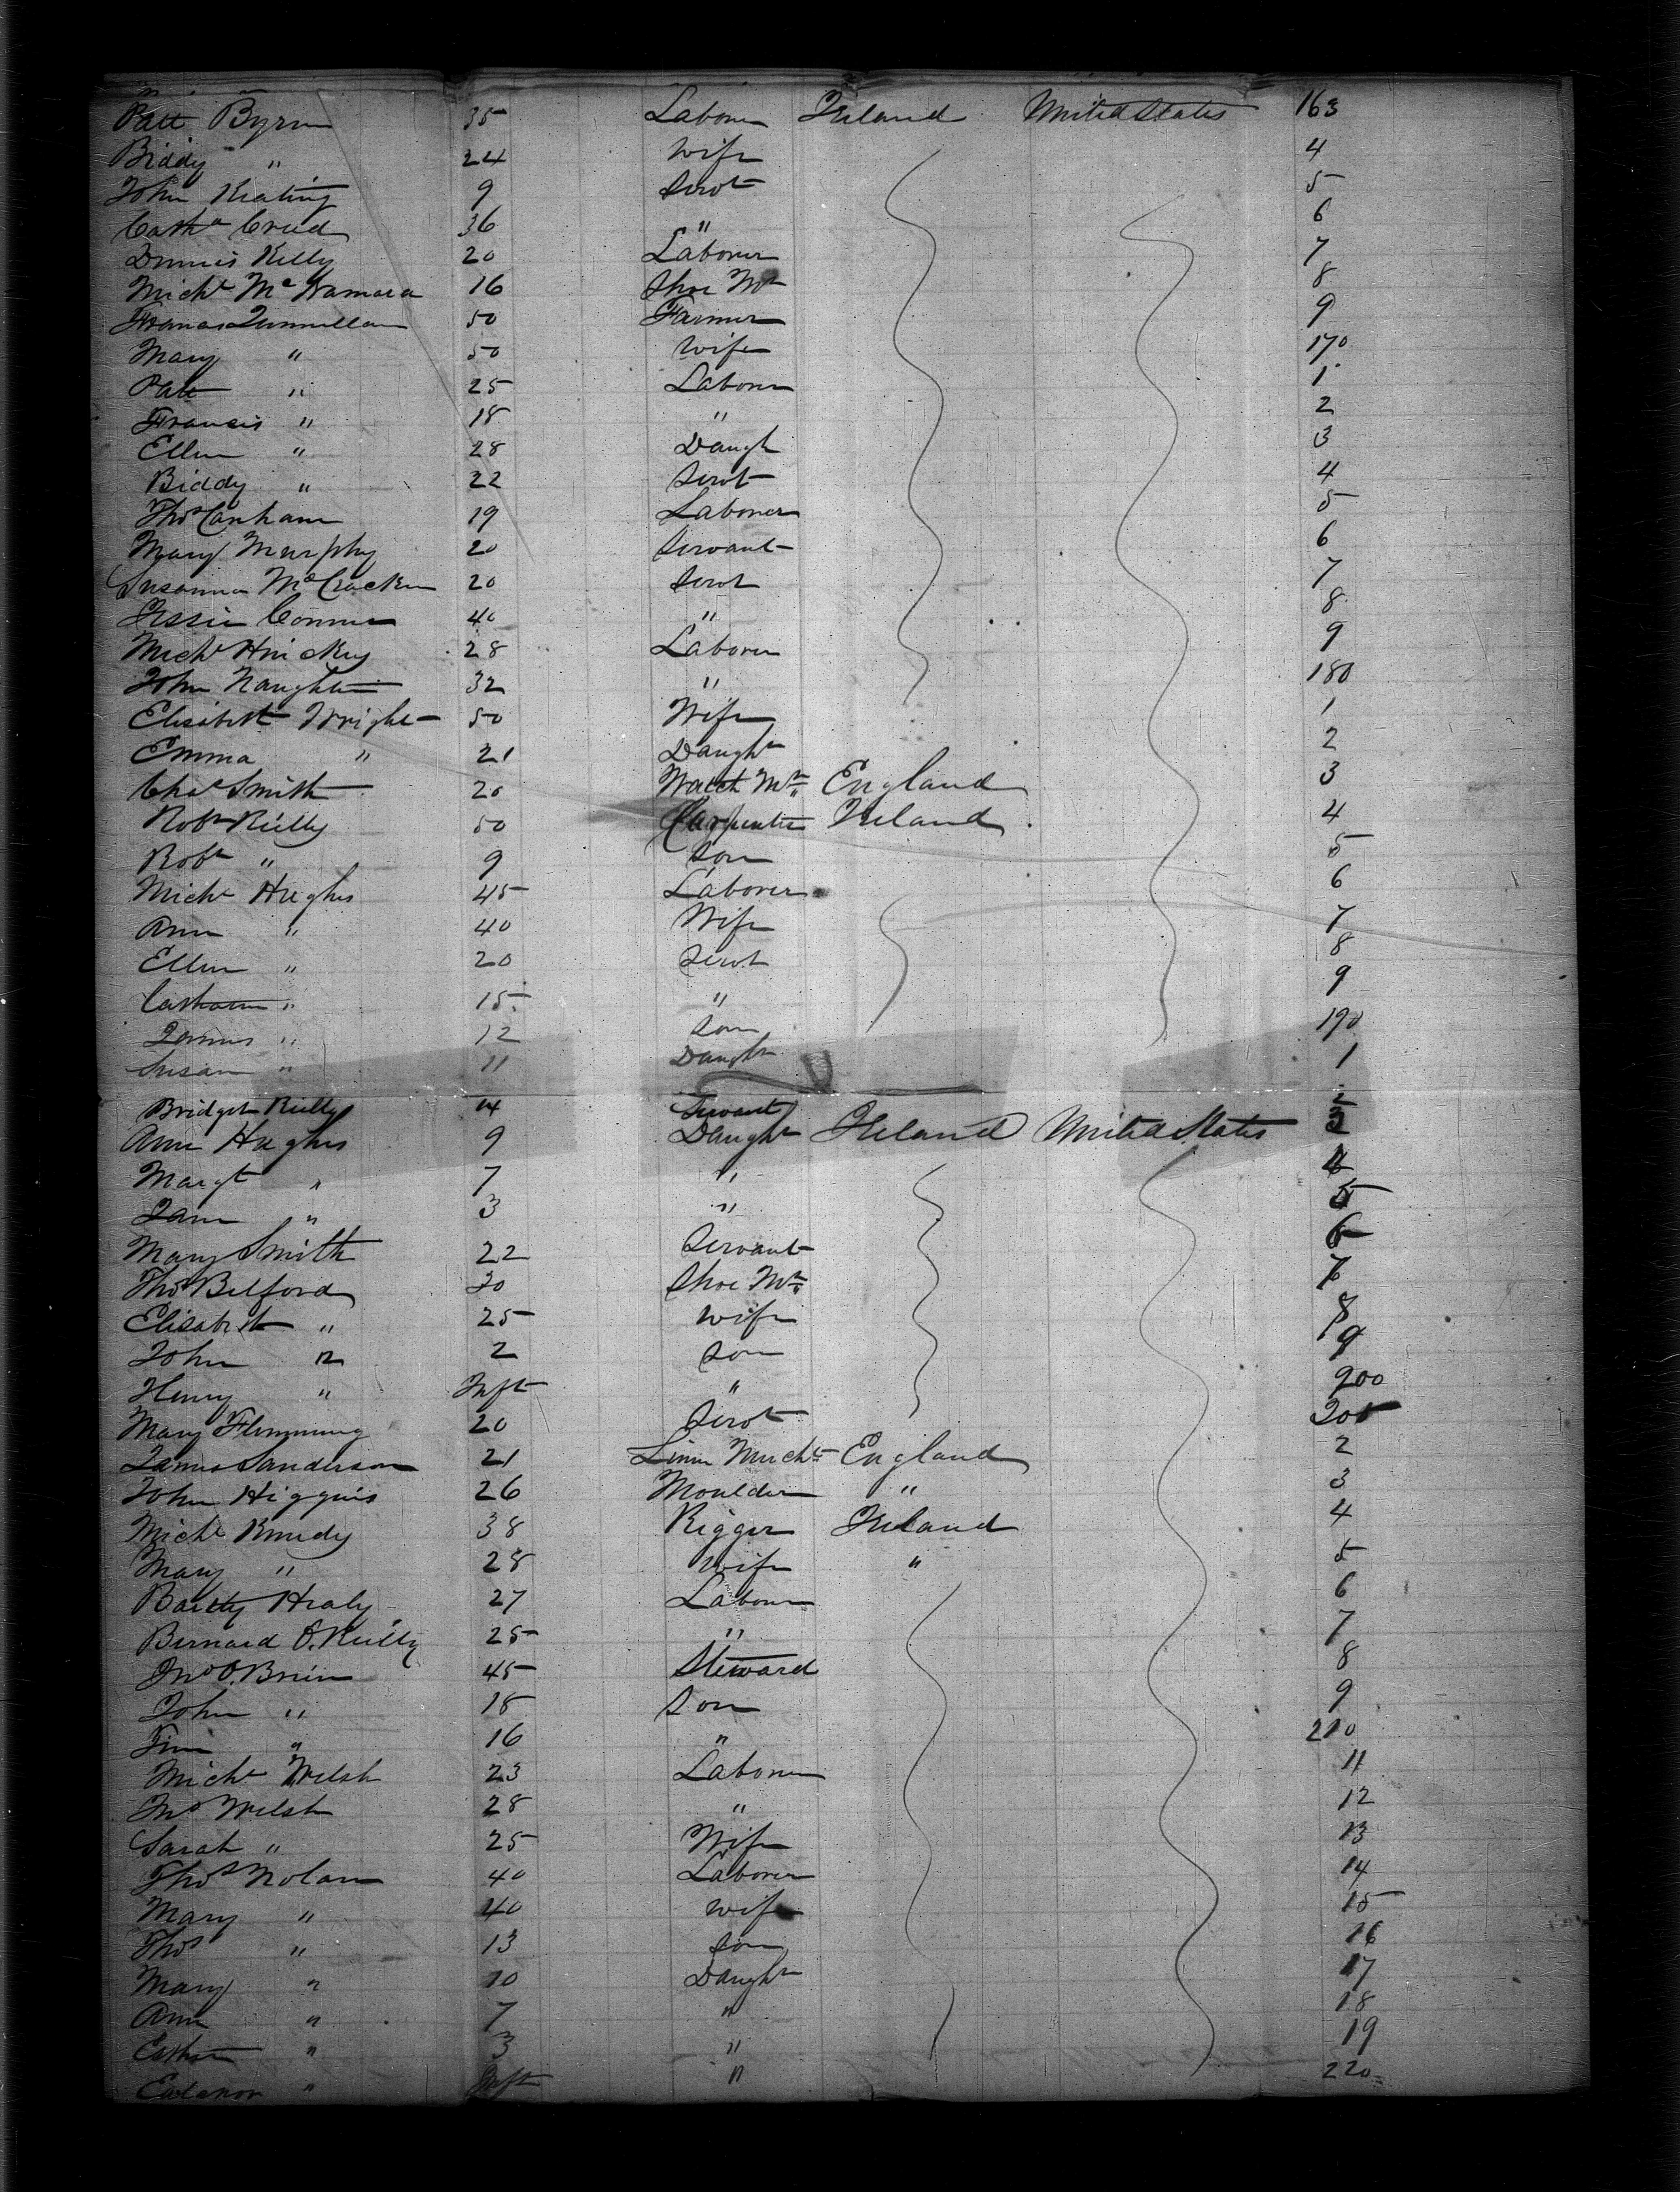 Patt Byrne 35 Laborer Ireland United States 163
Biddy " 24 Wife 4
John Keating 9 Servt 5
Cath<sup>n</sup> Creed 36 " 6
Dennis Kelly 20 Laborer 7
Mich<sup>l</sup> McNamara 16 Shoe M<sup>r</sup> 8
Francis Quinnellan 50 Farmer 9
Mary " 50 Wife 170
Patt " 25 Laborer 1
Francis " 18 " 2
Ellen " 28 Daugh 3
Biddy " 22 Servt 4
Tho<sup>s</sup> Canham 19 Laborer 5
Mary Murphy 20 Servant 6
Susanna McCracken 20 Servt 7
Jessie Connor 40 " 8
Mich<sup>l</sup> Hickey 28 Laborer 9
John Naughten 32 " 180
Elisabeth Wright 50 Wife 1
Emma " 21 Daugh<sup>r</sup> 2
Cha<sup>s</sup> Smith 20 Watch M<sup>r</sup> England 3
Rob<sup>t</sup> Reilly 50 Carpenter Ireland 4
Rob<sup>t</sup> " 9 Son 5
Mich<sup>l</sup> Hughes 45 Laborer 6
Ann " 40 Wife 7
Ellen " 20 Servt 8
Catharn " 15 " 9
James " 12 Son 190
Susan " 11 Daugh<sup>r</sup> 1
Bridget Reilly 14 Servant 2
Ann Hughes 9 Daugh<sup>r</sup> Ireland United States 3
Margt " 7 " 4
Jane " 3 " 5
Mary Smith 22 Servant 6
Tho<sup>s</sup> Belford 30 Shoe M<sup>r</sup> 7
Elisabeth " 25 Wife 8
John " 2 Son 9
Henry " Inft " 200
Mary Flemming 20 Servt 201
James Sanderson 21 Linen Mercht England 2
John Higgins 26 Moulder " 3
Mich<sup>l</sup> Kenedy 38 Rigger Ireland 4
Mary " 28 Wife " 5
Bartty Healy 27 Laborer 6
Bernard O.Reilly 25 " 7
Jn<sup>o</sup> O.Brien 45 Steward 8
John " 18 Son 9
Tim " 16 " 210
Mich<sup>l</sup> Welsh 23 Laborer 11
Jn<sup>o</sup> Welsh 28 " 12
Sarah " 25 Wife 13
Tho<sup>s</sup> Nolan 40 Laborer 14
Mary " 40 Wife 15
Tho<sup>s</sup> " 13 Son 16
Mary " 10 Daugh<sup>r</sup> 17
Ann " 7 " 18
Esther " 3 " 19
" Inft " 220